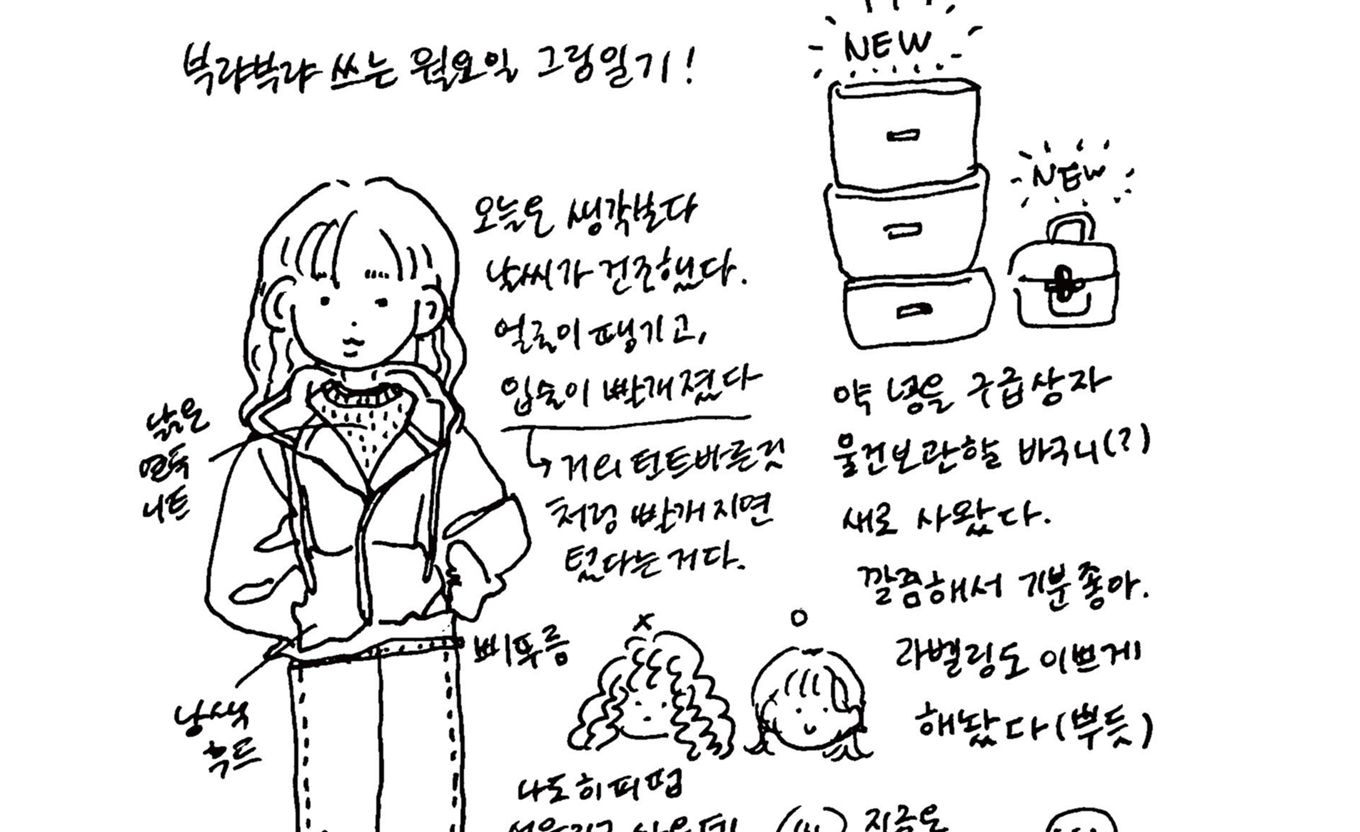 부랴부랴 쓰는 월요일 그림일기!
오늘은 생각보다
날씨가 건조했다.
얼굴이 땡기고,
입술이 빨개졌다
거의 틴트바른것
처럼 빨개지면
텄다는거다.
낡은
연두
니트
남색
후드
삐뚜름
NEW
NEW
약 넣을 구급상자
물건보관할 바구니(?)
새로 사왔다.
깔끔해서 기분좋아.
라벨링도 이쁘게
해놨다(뿌듯)
x
o
나도 히피펌
지금은